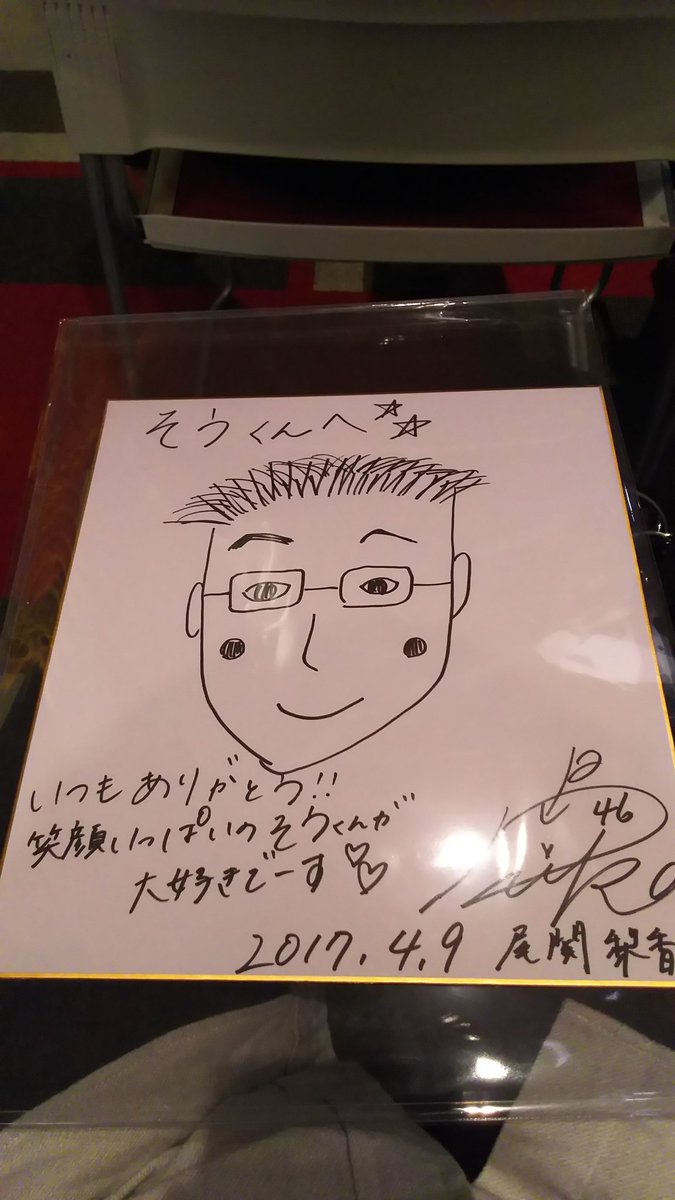 そうくんへ☆☆
いつもありがとう!!
笑顔いっぱいのそうくんが
大好きでーす♡♡
46
2017.4.9 尾関 梨香